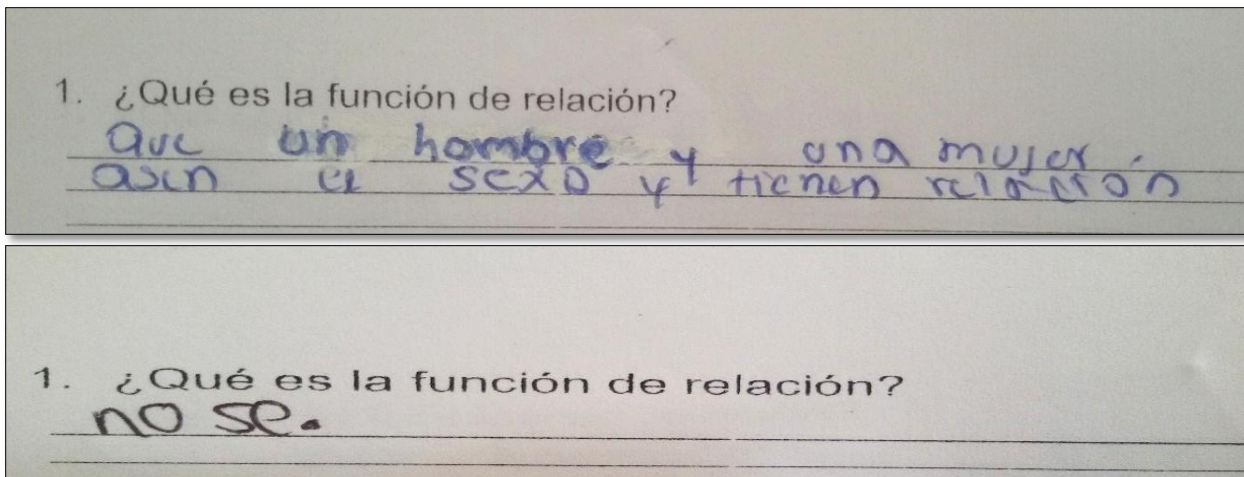 1. ¿Qué es la función de relación?
Que un hombre y una mujer
asen el sexo y tienen relacion
1. ¿Qué es la función de relación?
no se.